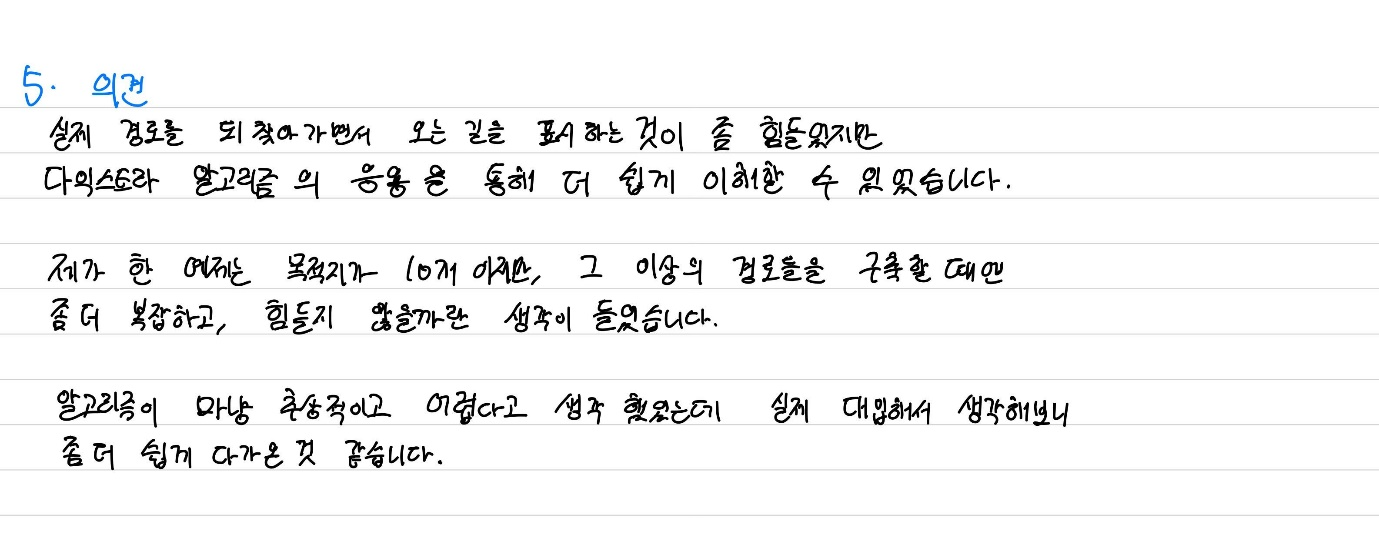 5. 의견
실제 경로를 되찾아가면서 오는 길을 표시하는 것이 좀 힘들었지만
다익스트라 알고리즘의 응용을 통해 더 쉽게 이해할 수 있었습니다.
제가 한 예제는 목적지가 10개 이지만, 그 이상의 경로들을 구축할 때엔
좀 더 복잡하고, 힘들지 않을까란 생각이 들었습니다.
알고리즘이 마냥 추상적이고 어렵다고 생각 했었는데 실제 대입해서 생각해보니
좀 더 쉽게 다가온 것 같습니다.